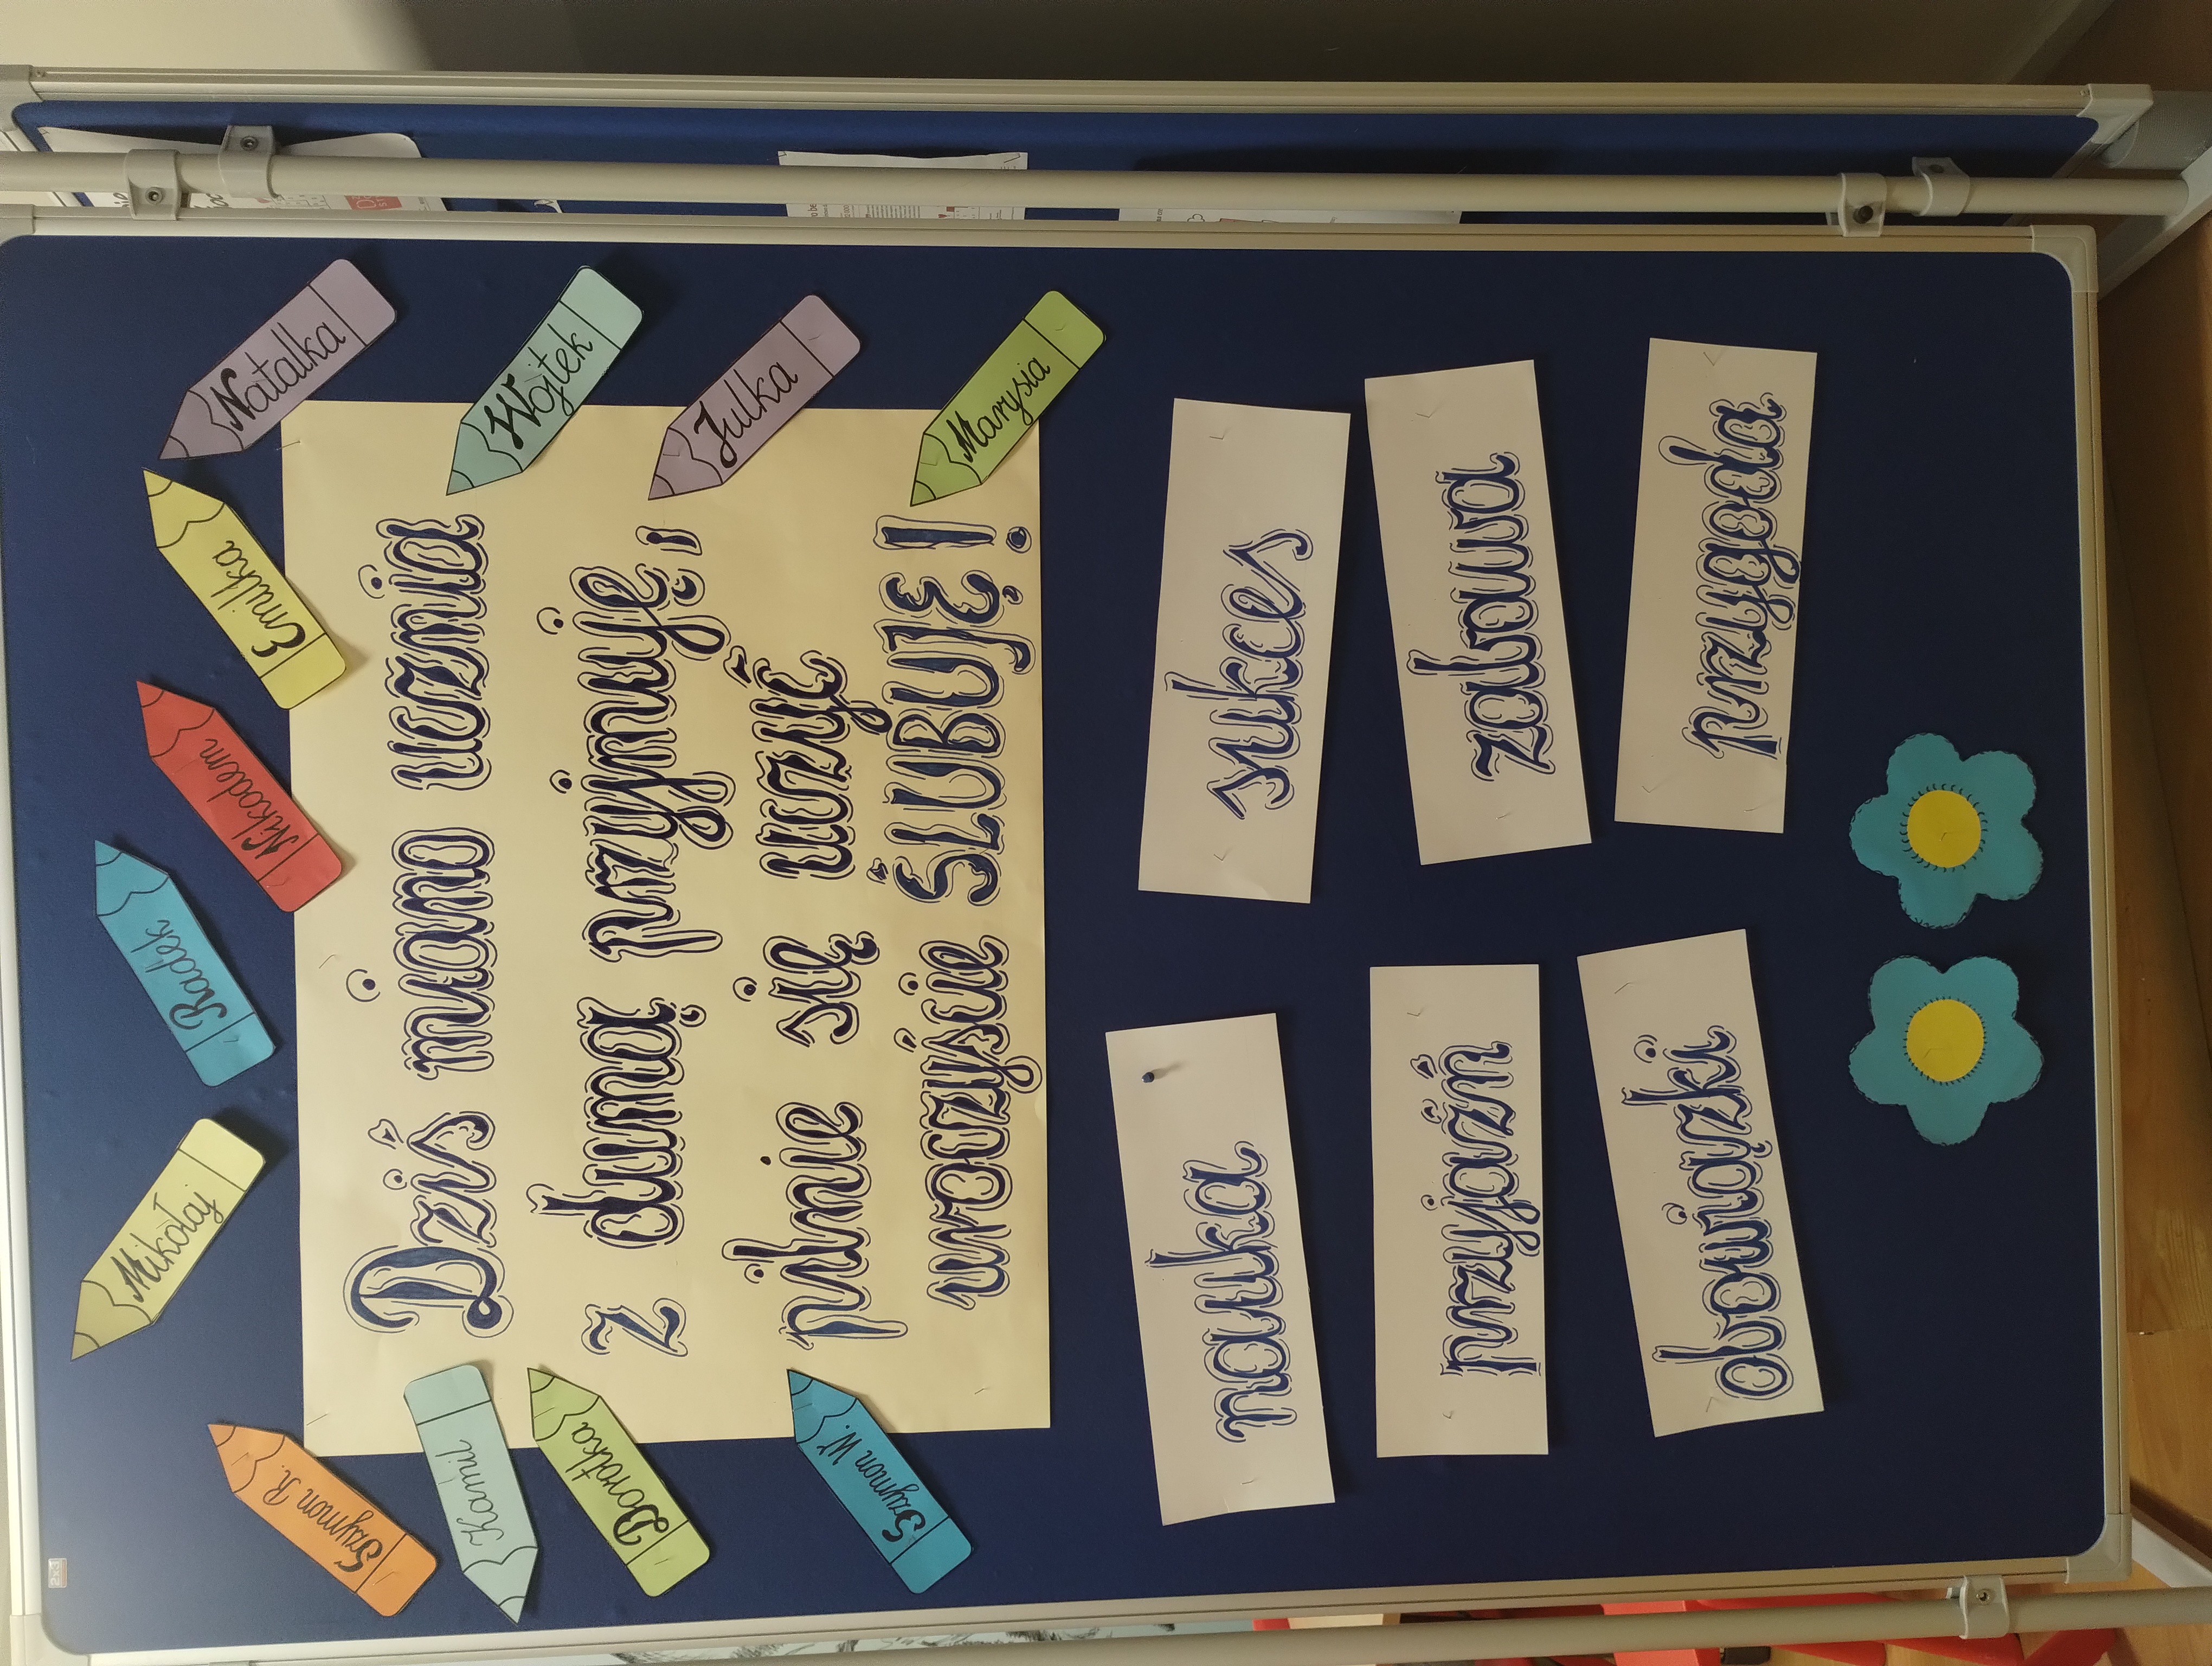 Dziś miano ucznia
z dumą przyjmuję,
pilnie się uczyć
uroczyście ŚLUBUJĘ!
Szymon R.
Mikołaj
Radek
Nikodem
Emilka
Natalka
Kamil
Dorotka
Szymon W.
Wojtek
Julka
Marysia
nauka
sukces
przyjaźń
zabawa
obowiązki
przygoda
2x3